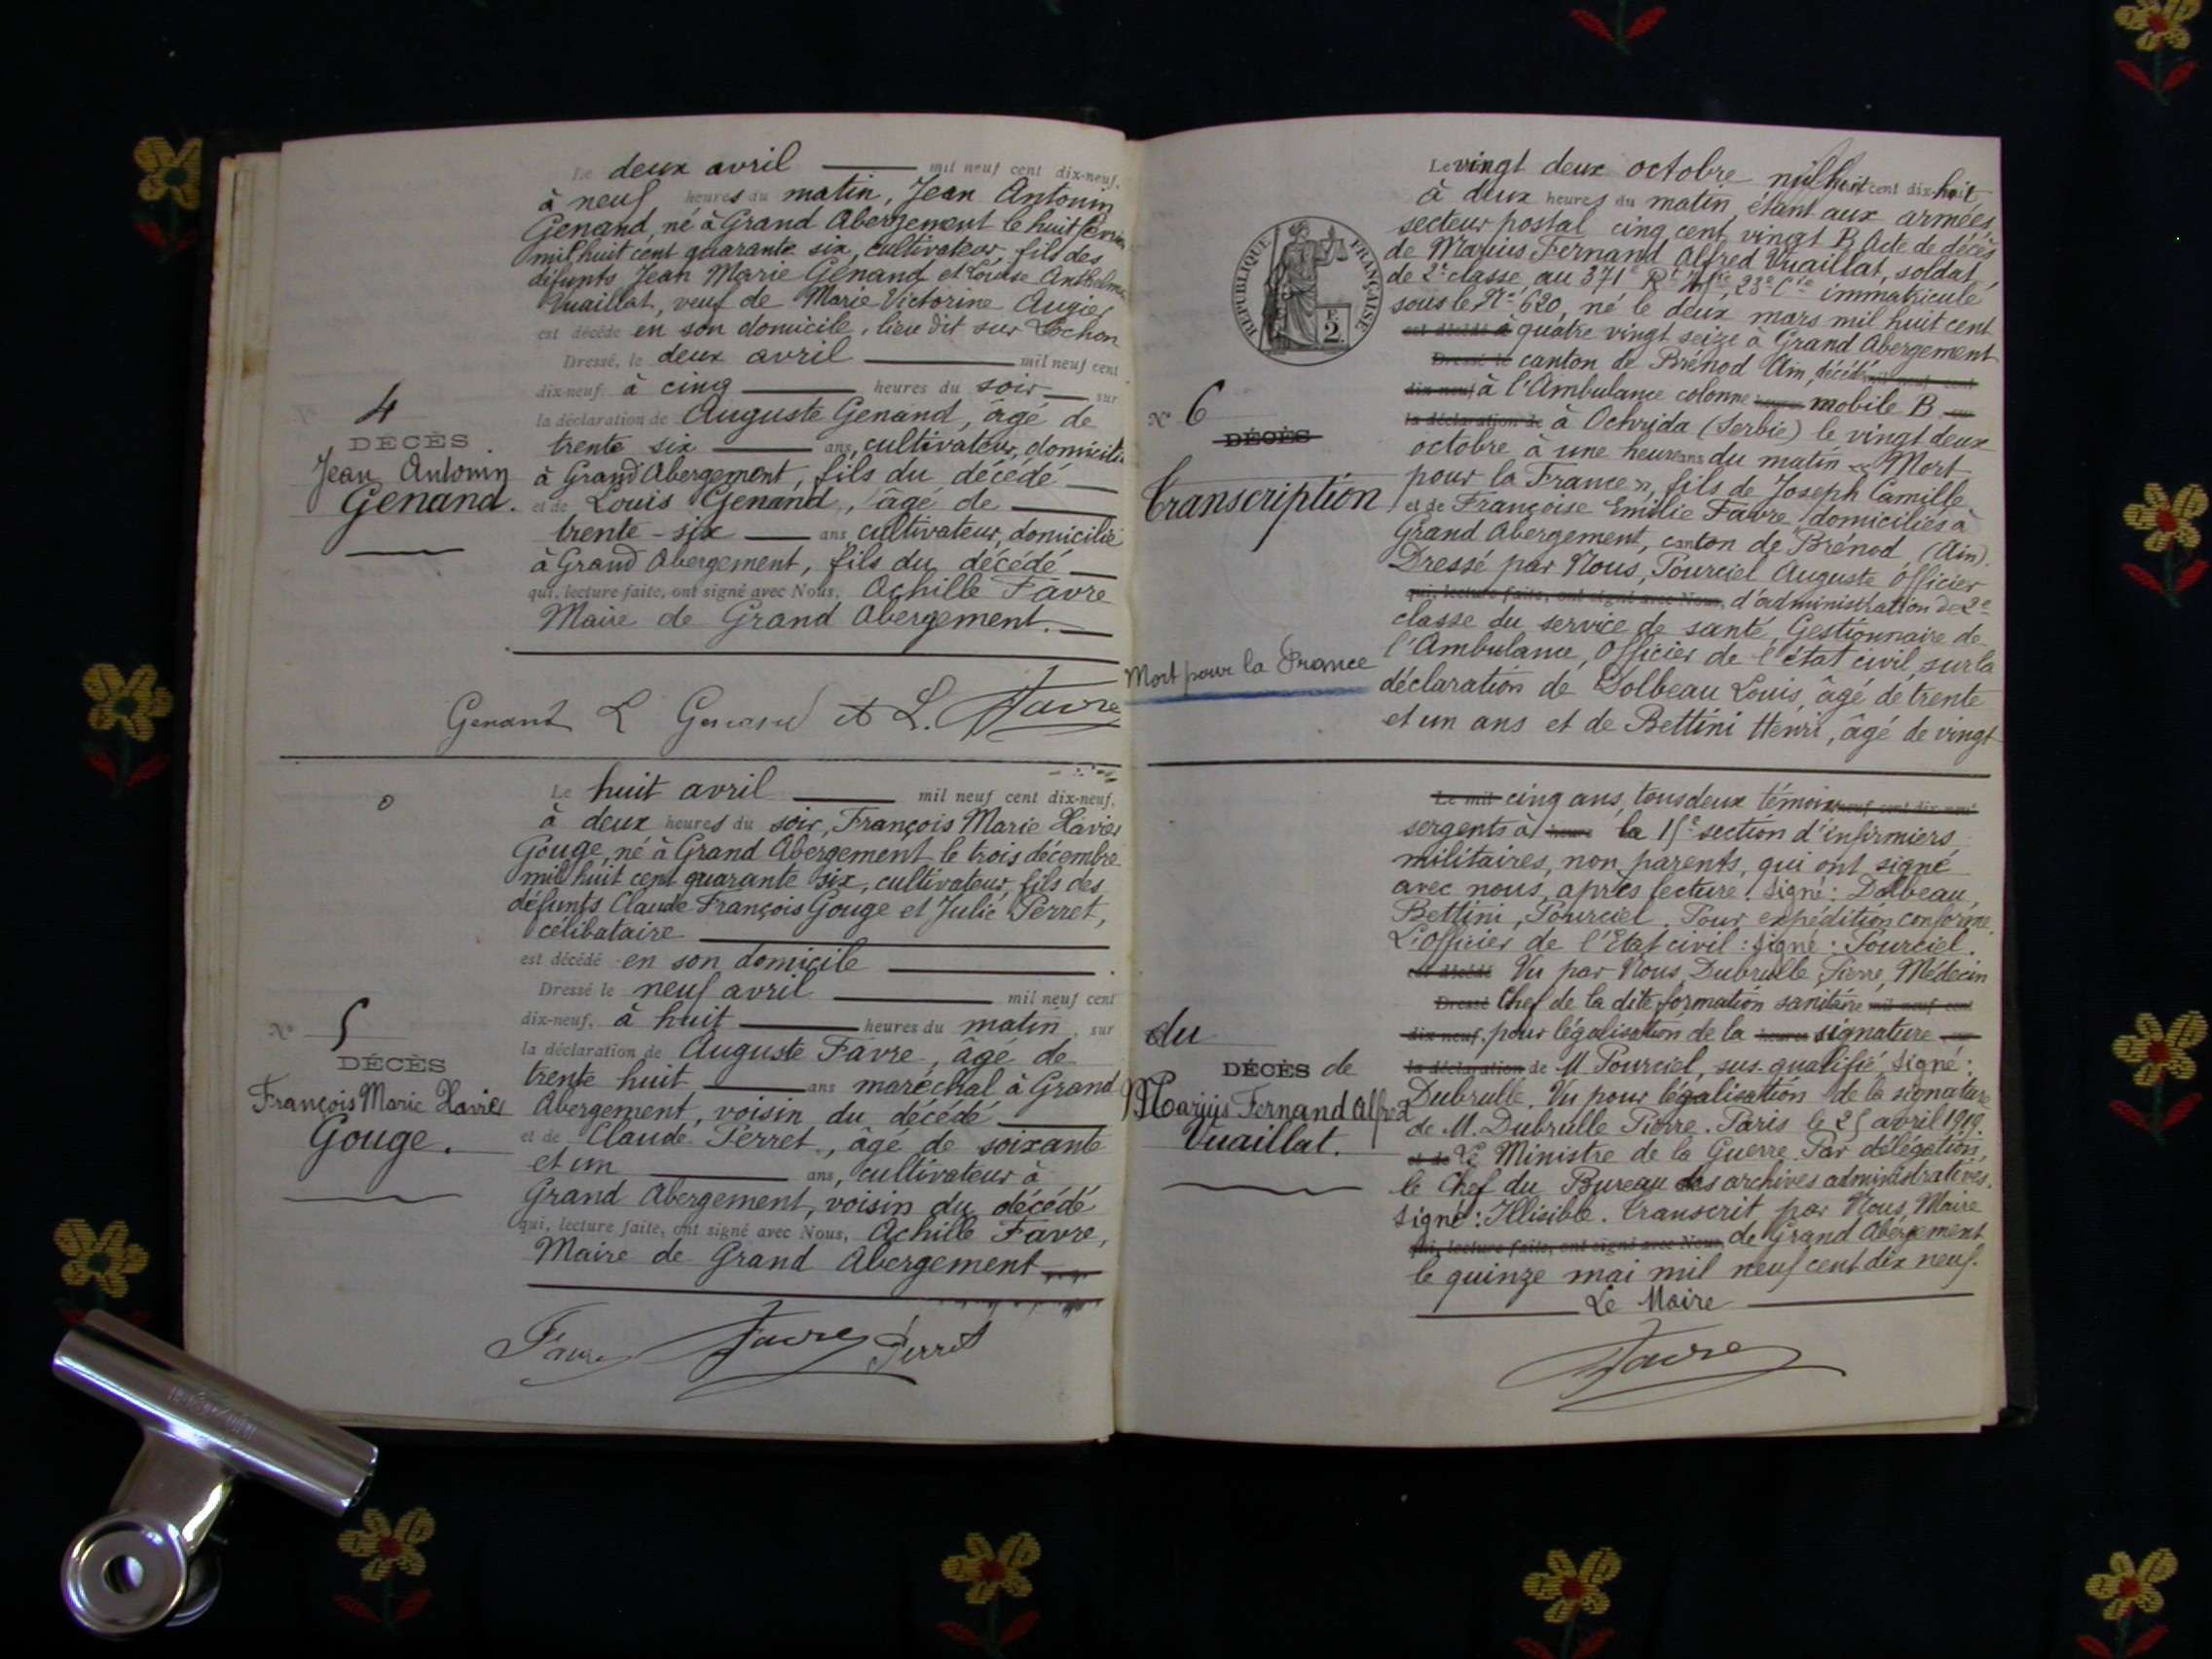 Le deux avril mil neuf cent dix-neuf,
à neuf heures du matin, Jean Antonin
Genand, né à Grand Abergement le huit
mil huit cent quarante six, cultivateur, fils des
défunts Jean Marie Genand et Louise Anthelme
Vuaillat, veuf de Marie Victorine Augier
est décédé en son domicile, lieu dit sur Lochon
Dressé, le deux avril mil neuf cent
dix-neuf, à cinq heures du soir sur
la déclaration de Auguste Genand, âgé de
trente six ans, cultivateur, domicilié
à Grand Abergement, fils du décédé
et de Louis Genand, âgé de
trente-six ans cultivateur, domicilié
à Grand Abergement, fils du décédé
qui, lecture faite, ont signé avec Nous, Achille Favre
Maire de Grand Abergement.
N° 4
DÉCÈS
Jean Antonin
Genand.
Genand L Genand A L. Favre
Le huit avril mil neuf cent dix-neuf,
à deux heures du soir, François Marie Xavier
Gouge, né à Grand Abergement le trois décembre
mil huit cent quarante six, cultivateur, fils des
défunts Claude François Gouge et Julie Perret,
célibataire
est décédé en son domicile
Dressé le neuf avril mil neuf cent
dix-neuf, à huit heures du matin, sur
la déclaration de Auguste Favre, âgé de
trente huit ans maréchal à Grand
Abergement, voisin du décédé
et de Claude Perret, âgé de soixante
et un ans, cultivateur à
Grand Abergement, voisin du décédé
qui, lecture faite, ont signé avec Nous, Achille Favre,
Maire de Grand Abergement
N° 5
DÉCÈS
François Marie Xavier
Gouge.
Favre Favre Perret
Le vingt deux octobre mil huit cent dix-huit,
à deux heures du matin, étant aux armées,
secteur postal cinq cent vingt B Acte de décès
de Marius Fernand Alfred Vuaillat, soldat
de 2e classe, au 371e Rt Infie, 23e Cie immatriculé
sous le N° 620, né le deux mars mil huit cent
est décédé à quatre vingt seize à Grand Abergement
Dressé le canton de Brénod Ain, décédé mil neuf cent
dix-neuf à l'Ambulance colonne heures mobile B
la déclaration de à Ochrida (Serbie) le vingt deux
octobre à une heure ans du matin « Mort
pour la France », fils de Joseph Camille
et de Françoise Emilie Favre, domiciliés à
Grand Abergement, canton de Brénod, (Ain).
Dressé par Nous, Pourciel Auguste Officier
qui, lecture faite, ont signé avec Nous, d'administration de 2e
classe du service de santé, Gestionnaire de
l'Ambulance, Officier de l'état civil, sur la
déclaration de Dolbeau Louis, âgé de trente
et un ans et de Bettini Henri, âgé de vingt
RÉPUBLIQUE FRANÇAISE
2
N° 6
DÉCÈS
Transcription
Mort pour la France
Le mil cinq ans, tous deux témoins neuf cent dix-neuf
sergents à heure la 15e section d'infirmiers
militaires, non parents, qui ont signé
avec nous, après lecture. Signé: Dolbeau,
Bettini, Pourciel. Pour expédition conforme
L'Officier de l'Etat civil: signé: Pourciel.
est décédé Vu par Nous, Dubrulle Pierre, Médecin
Dressé Chef de la dite formation sanitaire mil neuf cent
dix-neuf, pour légalisation de la heures signature sur
la déclaration de M. Pourciel, sus-qualifié, signé:
Dubrulle. Vu pour légalisation de la signature
de M. Dubrulle Pierre. Paris le 25 avril 1919.
et de Le Ministre de la Guerre. Par délégation,
le Chef du Bureau des archives administratives.
Signé: Illisible. Transcrit par Nous, Maire
qui, lecture faite, ont signé avec Nous, de Grand Abergement
le quinze mai mil neuf cent dix neuf.
Le Maire
du
DÉCÈS de
Marius Fernand Alfred
Vuaillat.
Favre